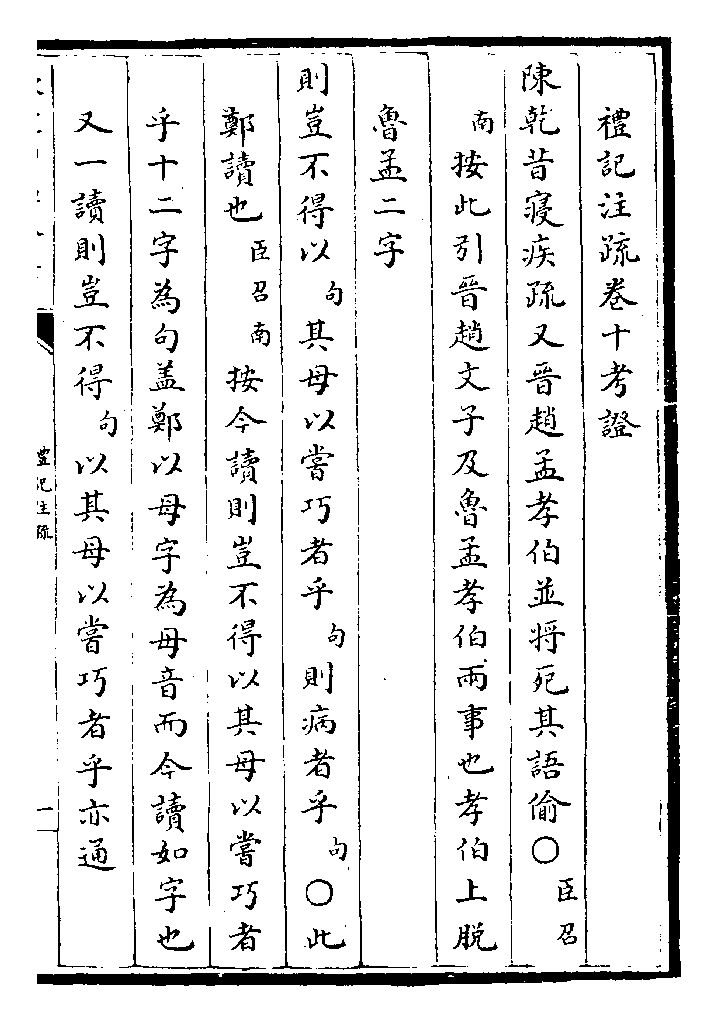 禮記注疏卷十考證
陳乾昔寝疾疏又晉趙孟孝伯並將死其語偷○臣召
南按此引晉趙文子及魯孟孝伯兩事也孝伯上脱
魯孟二字
則豈不得以句其母以嘗巧者乎句則病者乎句○此
鄭讀也臣召南按今讀則豈不得以其母以嘗巧者
乎十二字為句盖鄭以母字為毋音而今讀如字也
又一讀則豈不得句以其母以嘗巧者乎亦通
禮記注疏
一